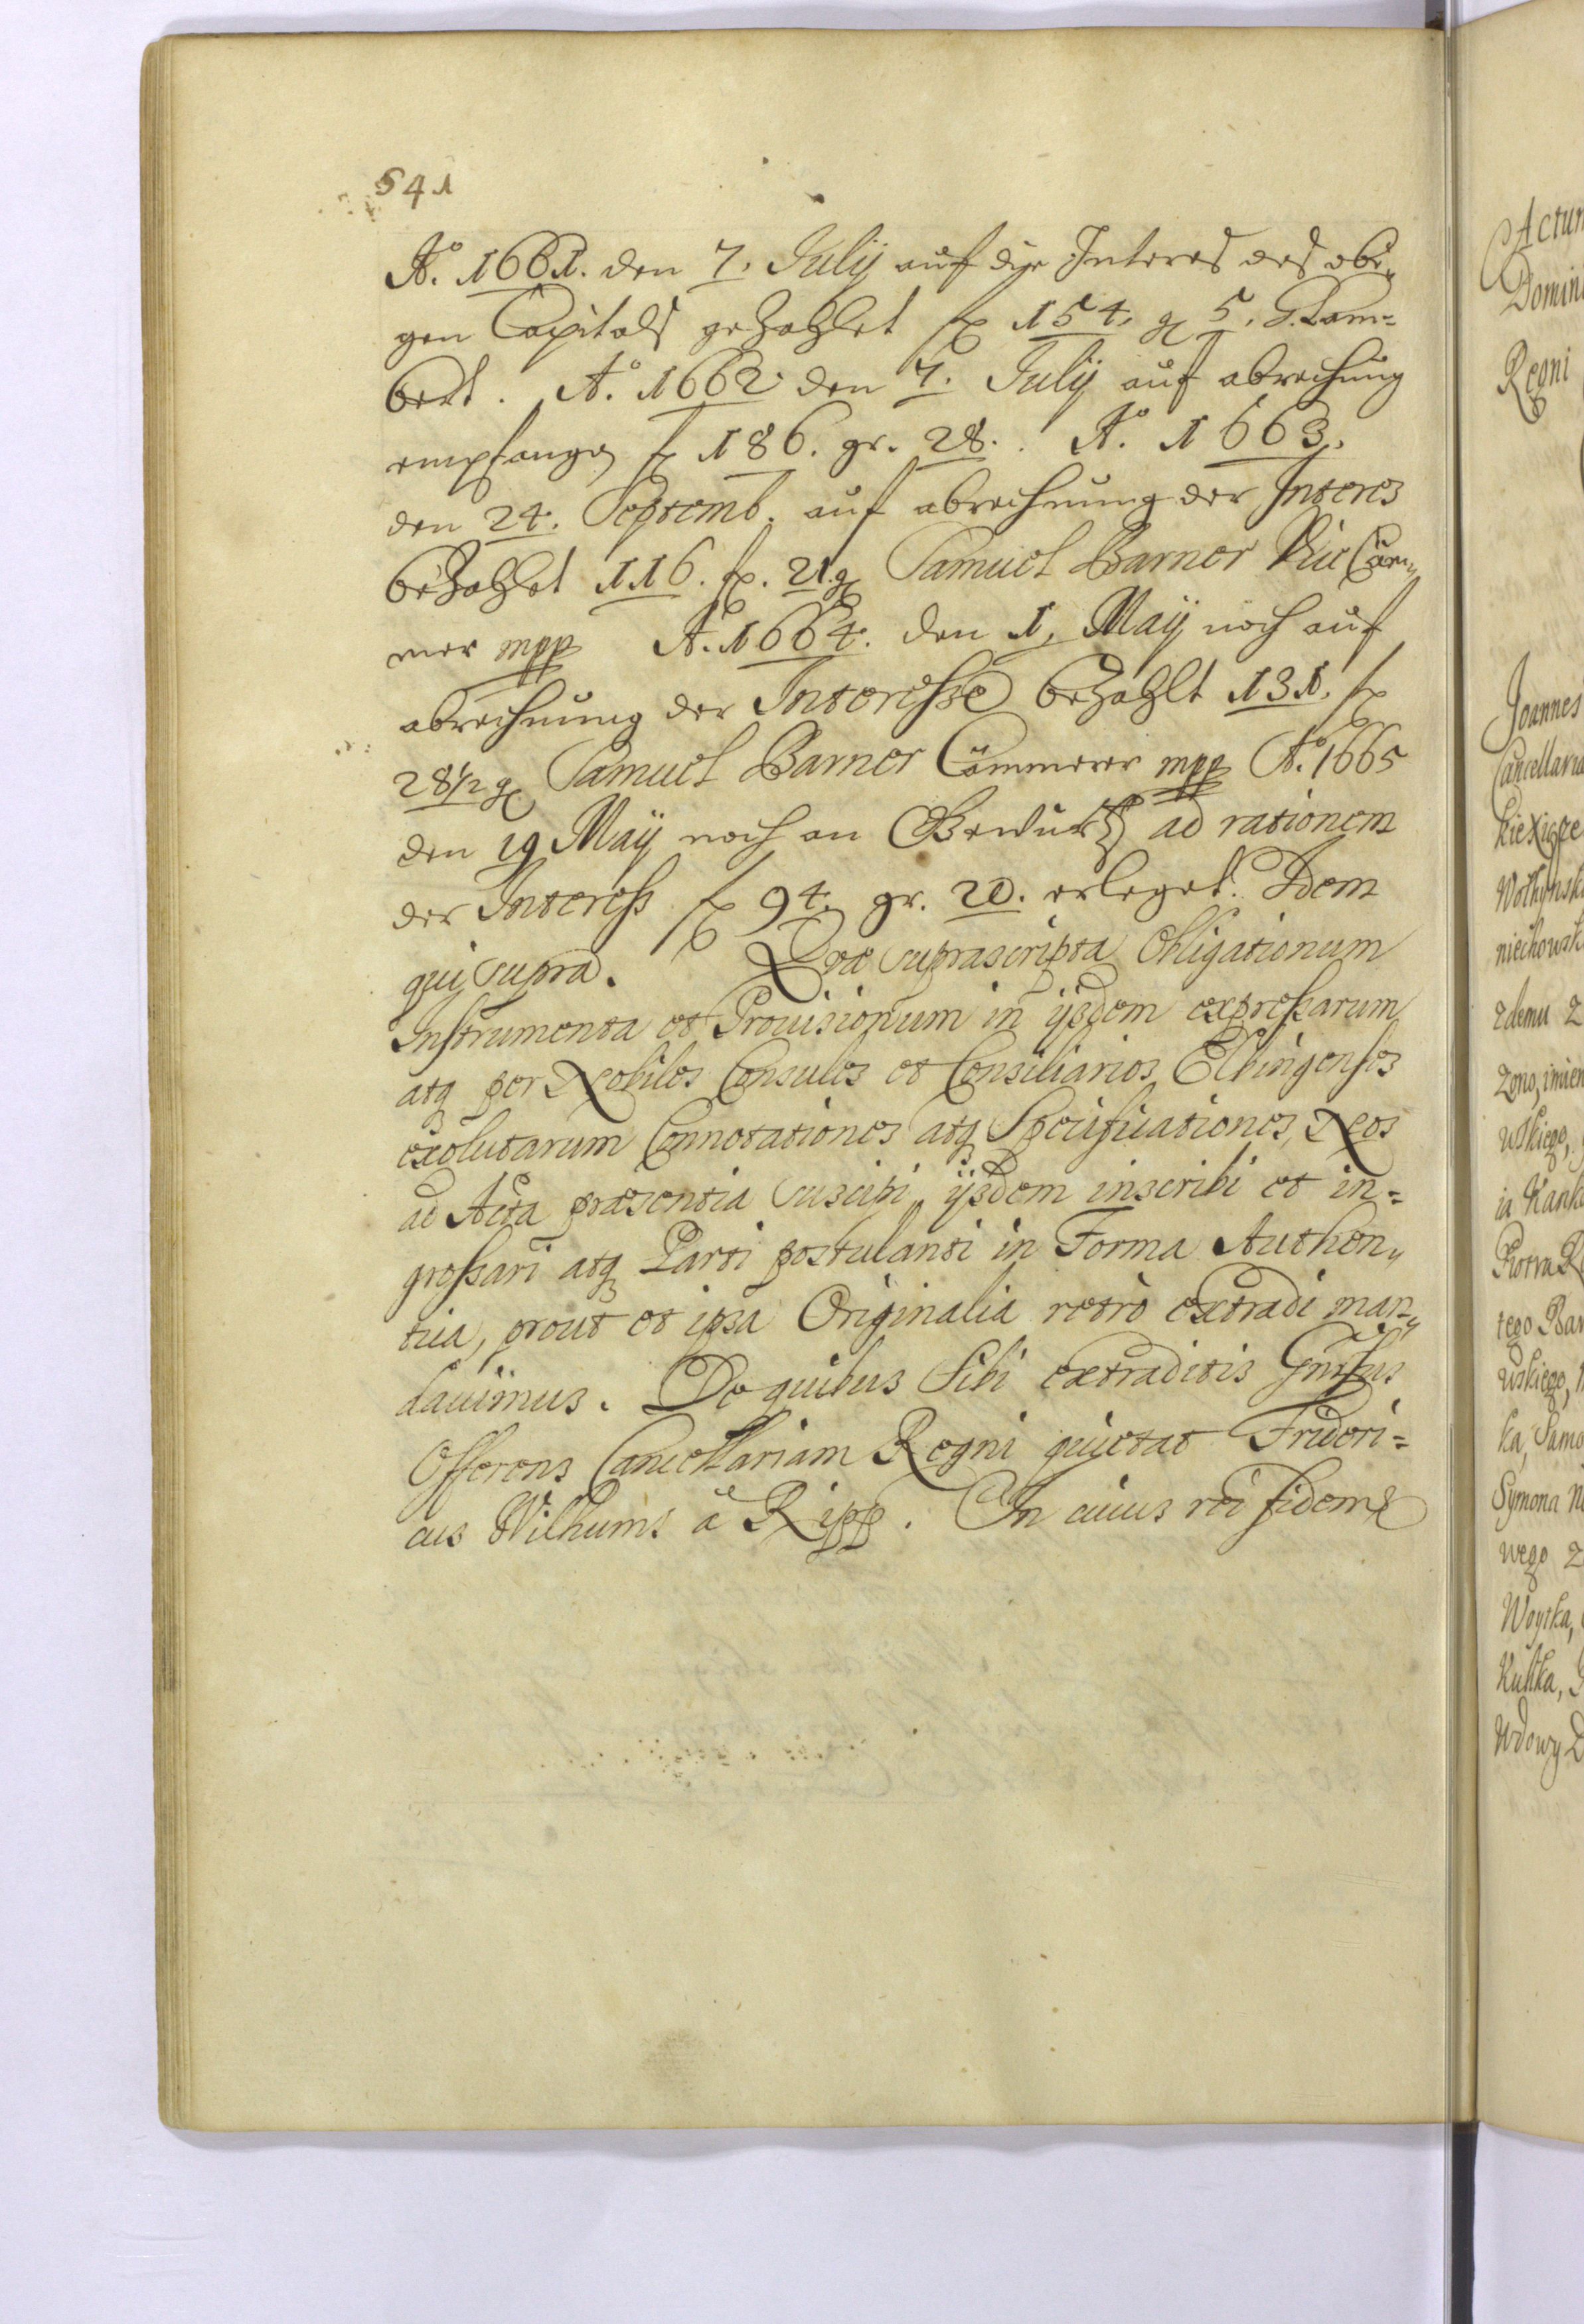 541
Aº. 1661. den 7. Julÿ auf die Interes des obi„
gen Capitals gezahlet fl 154. g 5. G. Lam=
bert. Aº. 1662 den 7. Julÿ auf abrechung
empfangen fl 186. gr. 28. Aº. 1663.
den 24. Septemb. auf abrechnung der Interes
bezahlet 116. fl. 21 g Samuel Barner Vice Cäm„
mer mpp Aº. 1664. den 1. Maÿ noch auf
abrechnung der Interesse bezahlt 131. fl
28½ g Samuel Barner Cämmerer mpp Aº. 1665
den 19 Maÿ noch an ad rationem
der Interess fl 94. gr. 20. erleget. Idem
qui supra. Quæ suprascripta Obligationum
Instrumenta et Prouisionum in ijsdem expressarum
atq per Nobiles Consules et Consiliarios Elbingenses
exolutarum Connotationes atq Specificationes, Nos
ad Acta præsentia suscipi, ijsdem inscribi et in=
grossari atq Parti postulanti in Forma Authen„
tica, prout et ipsa Originalia retrò extradi man„
dauimus. De quibus sibi extraditis Gnrsus
Offerens Cancellariam Regni quietat Frideri=
cus Wilhums à Ripp. In cuius rei fidem &
Actum
Domini
Regni
Joannes
Cancellaria
kie Xięże
Wołhynsk
niechowsk
zdemu z
zono, imien
wskiego,
ia Kank
Piotra
tego Bar
wskiego,
ka, Samo
Symona
wego z
Woytka,
Kustka,
Wdowy